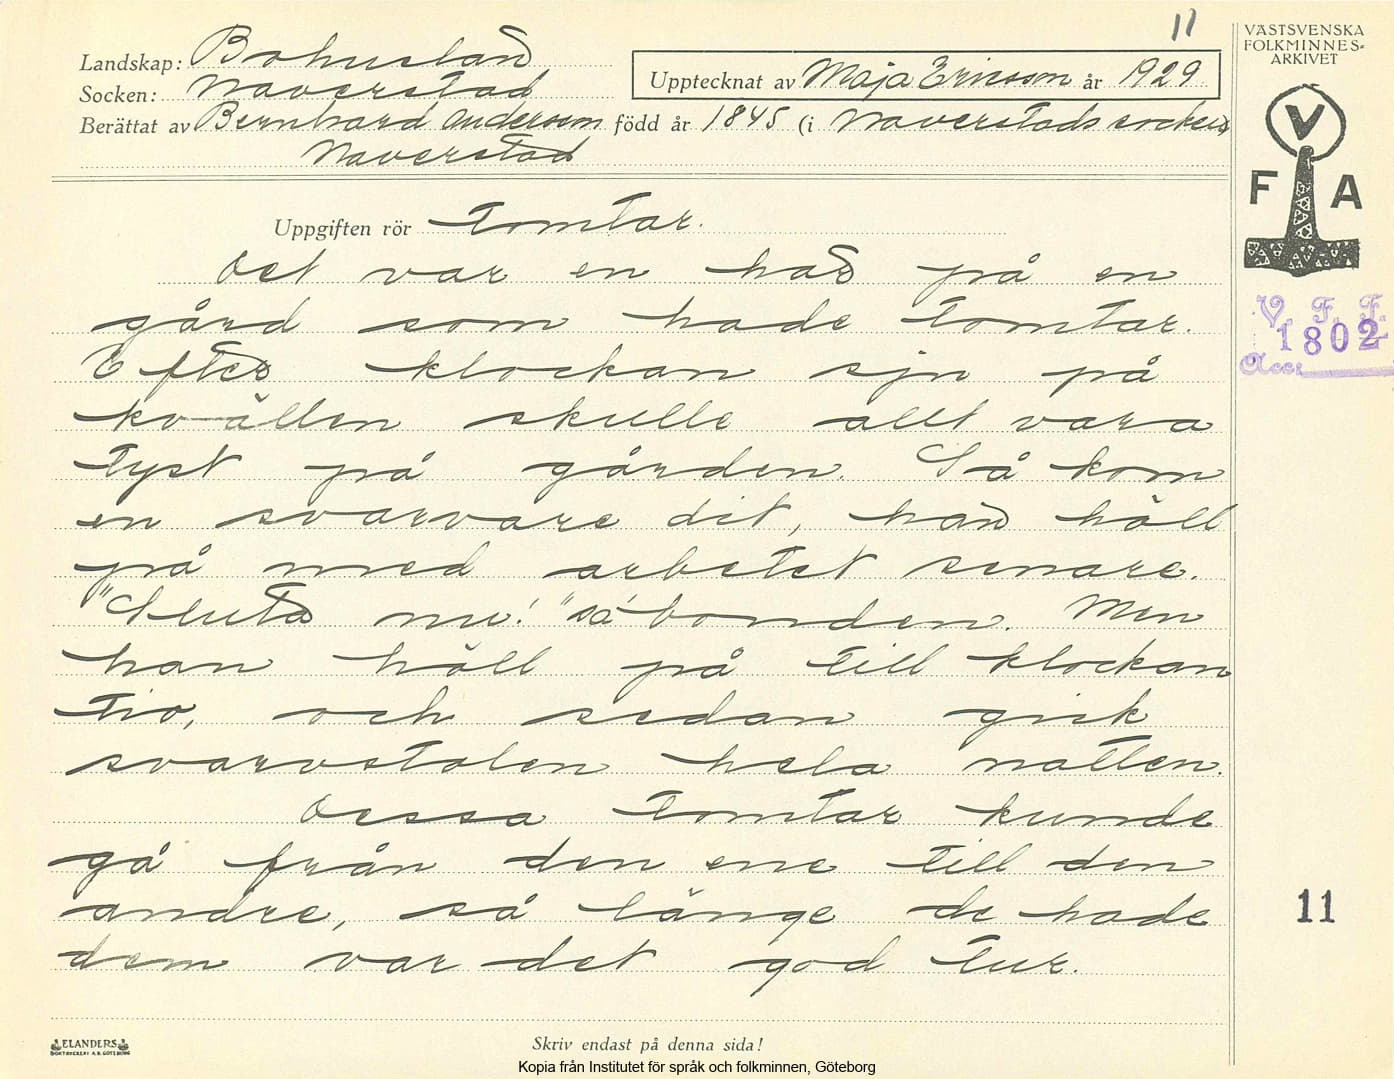 11
VÄSTSVENSKA
FOLKMINNES-
ARKIVET
Landskap: Bohuslän
Upptecknat av Maja Ericson år 1929
Socken: Naverstad
Berättat av Bernhard Anderson född år 1845 (i Naverstads socken
Naverstad
V
F A
Uppgiften rör Tomtar.
Det var en har på en
gård som hade tomtar.
Efter klockan sju på
kvällen skulle allt vara
tyst på gården. Så kom
en svarvare dit, han höll
på med arbetet senare.
"Sluta nu!" sa bonden. Men
han höll på till klockan
tio, och sedan gick
svarvstolen hela natten.
Dessa tomtar kunde
gå från den ene till den
andre, så länge de hade
dem var det god tur.
V. F. F.
1802
Acc:
11
ELANDERS
BOKTRYCKERI A.B. GÖTEBORG
Skriv endast på denna sida!
Kopia från Institutet för språk och folkminnen, Göteborg